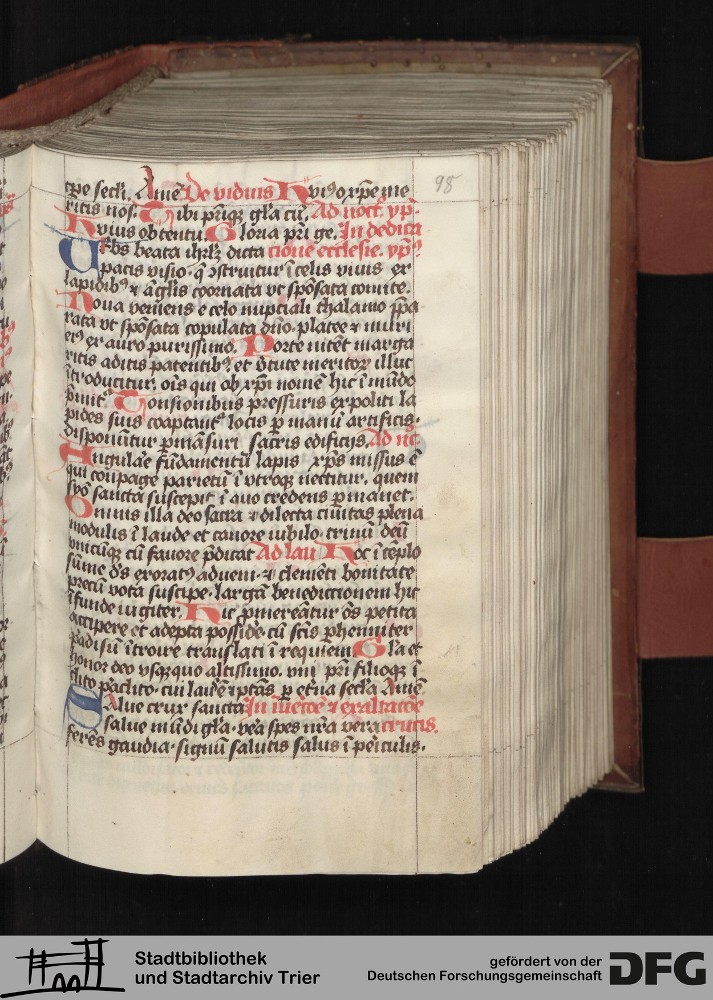 98
tp̄e secl̄i. Amē De viduis Huiꝰ o xp̄e me
ritis nos. Tibi pr̄iqꝫ gl̄a cū. Ad noct. yp̄.
Huius obtentu. Gloria pr̄i ge. In dedica
Urbs beata ihrl̄ꝫ dicta cione ecclesie. yp̄ꝰ
pacis visio. q̄ ꝯstruitur ī celis viuis ex
lapidibꝰ ⁊ āgl̄is coornata vt spōsata comite.
Noua veniens e celo nuptiali thalamo p̄pa
rata vt spōsata copulata dn̄o. platee ⁊ muri
eiꝰ ex auro purissimo. Porte nitēt marga
ritis aditis patentibꝰ et v̄tute meritoꝝ illuc
ītroducitur. oīs qui ob xp̄i nomē hic ī mūdo
p̄mitᷣ. Tonsionibus pressuris expoliti la
pides suis coaptantᷣ locis p̄ manū artificis.
disponūtur p̄māsuri sacris edificijs. Ad nc̄.
Angulare fūdamentū lapis xp̄s missus ē
qui compage parietū ī vtroqꝫ nectitur. quem
syō sancta suscepit. ī quo credens p̄manet.
Omnis illa deo sacra ⁊ dilecta ciuitas plena
modulis ī laude et canore iubilo. trinū deū
vnicūqꝫ cū fauore p̄dicat Ad lau. Hoc ī tēplo
sūme dꝰs exoratꝰ adueni. ⁊ clemēti bonitate
precū vota suscipe. largā benedictionem hic
īfunde iugiter. Hic p̄mereantur oēs petita
accipere et adepta possidē. cū scīs p̄henniter
p̄adisū ītroire translati ī requiem. Gl̄a et
honor deo vsqꝫquo altissimo. vni pr̄i filioqꝫ ī
clito paclito. cui laus ē ⁊ ptās p̄ et̄na secl̄a Amē
Salue crux sancta In īuētōe ⁊ exaltatōe
salue mūdi gl̄a. ve͞a spes nr̄a vera crucis.
ferēs gaudia. signū salutis salus ī pe̅iculis.
Stadtbibliothek
und Stadtarchiv Trier
gefördert von der
Deutschen Forschungsgemeinschaft
DFG